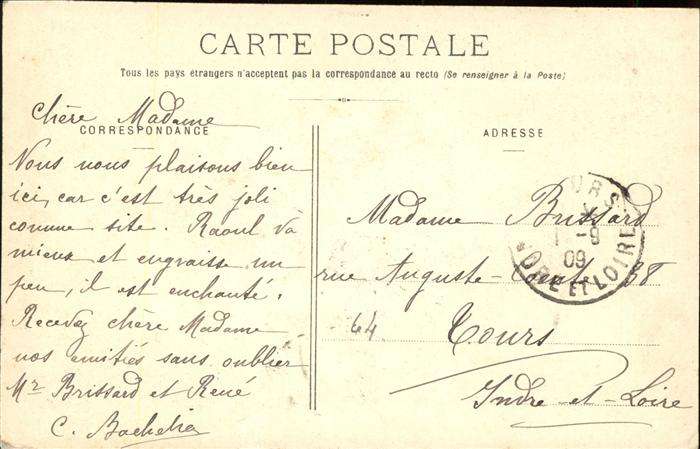 CARTE POSTALE
Tous les pays étrangers n'acceptent pas la correspondance au recto (Se renseigner à la Poste)
CORRESPONDANCE
Chère Madame
Nous nous plaisons bien
ici, car c'est très joli
comme site. Raoul va
mieux et engraisse un
peu, il est enchanté.
Recevez chère Madame
nos amitiés sans oublier
Mr Brissard et René
C. Bachelier
ADRESSE
Madame Brissard
rue Auguste-Comte 38
Tours
Indre-et-Loire
64
TOURS
1 -9
09
INDRE ET LOIRE